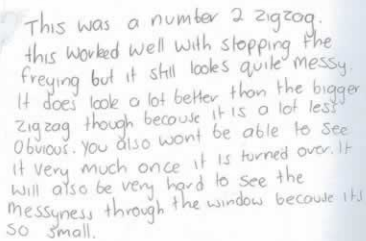 This was a number 2 zigzag.
this worked well with stopping the
freying but it still lookes quite messy.
It does look a lot better than the bigger
zigzag though because it is a lot less
Obvious. You also wont be able to see
it very much once it is turned over. It
will also be very hard to see the
messyness through the window because its
so small.